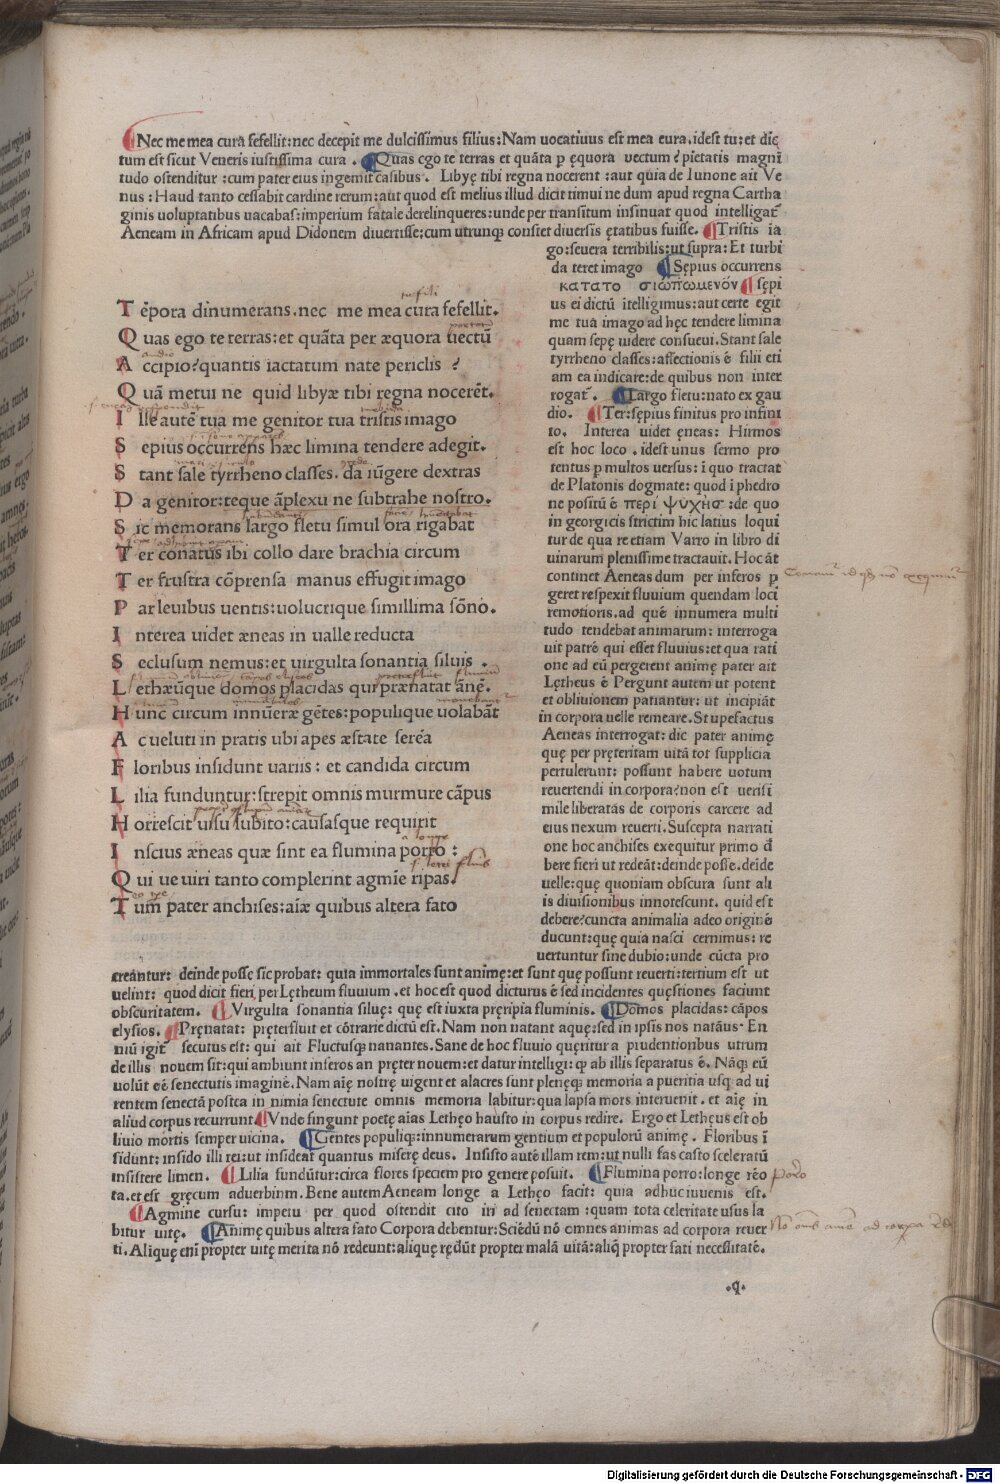 ¶Nec me mea curā fefellit:nec decepit me dulcissimus filius:Nam uocatiuus est mea cura.idest tu:et dic
tum est sicut Veneris iustissima cura . ¶Quas ego te terras et quāta ꝑ ęquora vectum ? pietatis magni
tudo ostenditur :cum pater eius ingemit casibus . Libyę tibi regna nocerent :aut quia de Iunone ait Ve
nus : Haud tanto cessabit cardine rerum:aut quod est melius illud dicit timui ne dum apud regna Cartha
ginis uoluptatibus uacabas:imperium fatale derelinqueres:unde per transitum insinuat quod intelligat̄
Aeneam in Africam apud Didonem diuertisse:cum utrunqꝫ constet diuersis ętatibus fuisse. ¶Tristis ia
go:seuera terribilis:ut supra: Et turbi
da terret imago ¶Sępius occurrens
κατατο σιωπωμενον ¶sępi
us ei dictū ītelligimus:aut certe egit
me tua imago ad hęc tendere limina
quam sepę uidere consueui. Stant sale
tyrrheno classes:affectionis ē filii eti
am ea indicare:de quibus non inter
rogat̄ . ¶Largo fletu:nato ex gau
dio. ¶Ter:sępius finitus pro infini
to. Interea uidet ęneas: Hirmos
est hoc loco . idest unus sermo pro
tentus ꝑ multos uersus: ī quo tractat
de Platonis dogmate: quod ī phedro
ne positū ē περι ψυχησ :de quo
in georgicis strictim hic latius loqui
tur de qua re etiam Varro in libro di
uinarum plenissime tractauit. Hoc āt
continet Aeneas dum per inferos ꝑ
geret respexit fluuium quendam loci
remotioris.ad quē innumera multi
tudo tendebat animarum: interroga
uit patrē qui esset fluuius:et qua rati
one ad eū pergerent animę pater ait
Lętheus ē Pergunt autem ut potent
et obliuionem patiantur: ut incipiāt
in corpora uelle remeare. Stupefactus
Aeneas interrogat: dic pater animę
quę per pręteritam uitā tot supplicia
pertulerunt: possunt habere uotum
reuertendi in corpora?non est uerisi
mile liberatas de corporis carcere ad
eius nexum reuerti. Suscepta narrati
one hoc anchises exequitur primo d̄
bere fieri ut redeāt:deinde posse. deīde
uelle:quę quoniam obscura sunt ali
is diuisionibus innotescunt. quid est
debere?cuncta animalia a deo originē
ducunt:quę quia nasci cernimus: re
uertuntur sine dubio:unde cūcta pro
creāntur: deinde posse sic probat: quia immortales sunt animę:et sunt quę possunt reuerti:tertium est ut
uelint: quod dicit fieri per Lętheum fluuium .et hoc est quod dicturus ē sed incidentes quęstiones faciunt
obscuritatem. ¶ Virgulta sonantia siluę: quę est iuxta pręripia fluminis. ¶Domos placidas: cāpos
elysios. ¶Pręnatat: pręterfluit et cōtrarie dictū est. Nam non natant aquę:sed in ipsis nos natāus. En
niū igit̄ secutus est: qui ait Fluctusqꝫ nanantes. Sane de hoc fluuio quęritur a prudentioribus utrum
de illis nouem sit:qui ambiunt inferos an pręter nouem:et datur intelligi: ꝙ ab illis separatus ē. Nāqꝫ eū
uolūt eē senectutis imaginē. Nam aię nostrę uigent et alacres sunt plenęqꝫ memoria a pueritia usqꝫ ad ui
rentem senectā postea in nimia senectute omnis memoria labitur:qua lapsa mors interuenit . et aię in
aliud corpus recurrunt. ¶Vnde fingunt poetę aias Lethęo hausto in corpus redire. Ergo et Lethęus est ob
liuio mortis semper uicina. ¶Gentes populiqꝫ:innumerarum gentium et populorū animę . Floribus ī
sidunt: insido illi rei:ut insideat quantus miserę deus. Insisto autē illam rem:ut nulli fas casto sceleratū
insistere limen. ¶Lilia fundūtur:circa flores speciem pro genere posuit. ¶Flumina porro:longe rēo
ta.et est gręcum aduerbinm. Bene autem Aeneam longe a Lethęo facit: quia adhuc iuuenis est.
¶Agmine cursu: impetu per quod ostendit cito iri ad senectam :quam tota celeritate usus la
bitur uitę. ¶Animę quibus altera fato Corpora debentur:Sciēdū nō omnes animas ad corpora reuer
ti. Aliquę eni propter uitę merita nō redeunt:aliquę rędūt propter malā uitā:aliq̄ propter fati necessitatē.
Tēpora dinumerans.nec me mea cura fefellit.
Quas ego te terras:et quāta per æquora uectū
Accipio?quantis iactatum nate periclis ?
Quā metui ne quid libyæ tibi regna nocerēt.
Ille autē tua me genitor tua tristis imago
Sepius occurrens hæc limina tendere adegit.
Stant sale tyrrheno classes. da iūgere dextras
Da genitor:teque āplexu ne subtrahe nostro.
Sic memorans largo fletu simul ora rigabat
Ter conatus ibi collo dare brachia circum
Ter frustra cōprensa manus effugit imago
Par leuibus uentis:uolucrique simillima sōno.
Interea uidet æneas in ualle reducta
Seclusum nemus:et uirgulta sonantia siluis .
Lethæūque domos placidas qui prænatat ānē.
Hunc circum innūeræ gētes:populique uolabāt
Ac ueluti in pratis ubi apes æstate serēa
Floribus insidunt uariis : et candida circum
Lilia funduntur:strepit omnis murmure cāpus
Horrescit uisu subito:causasque requirit
Inscius æneas quæ sint ea flumina porro :
Qui ue uiri tanto complerint agmīe ripas.
Tum pater anchises:aīæ quibus altera fato
porro
.q.
Digitalisierung gefördert durch die Deutsche Forschungsgemeinschaft - DFG